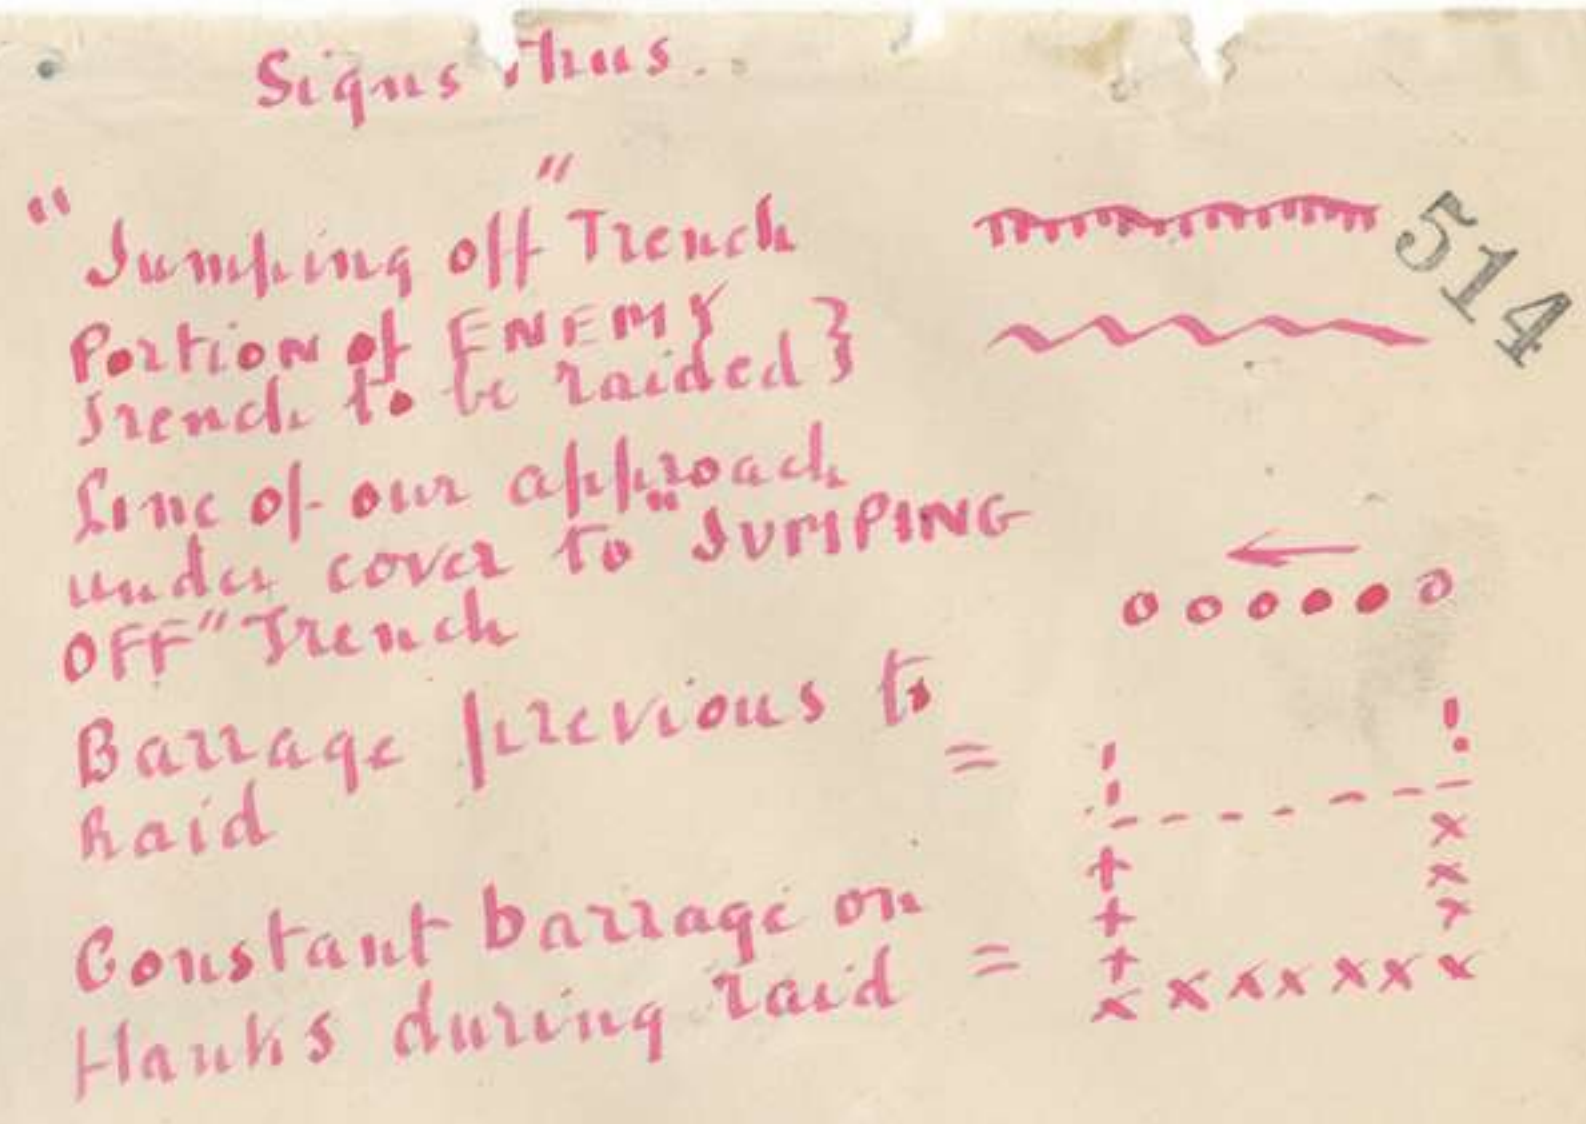 Signs thus.
"Jumping off" Trench
514
Portion of ENEMY
Trench to be raided }
Line of our approach
under cover to "JUMPING
OFF" Trench
Barrage previous to =
Raid
Constant barrage on
flanks during raid =